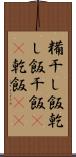 糒干し飯乾
し飯干飯
乾飯